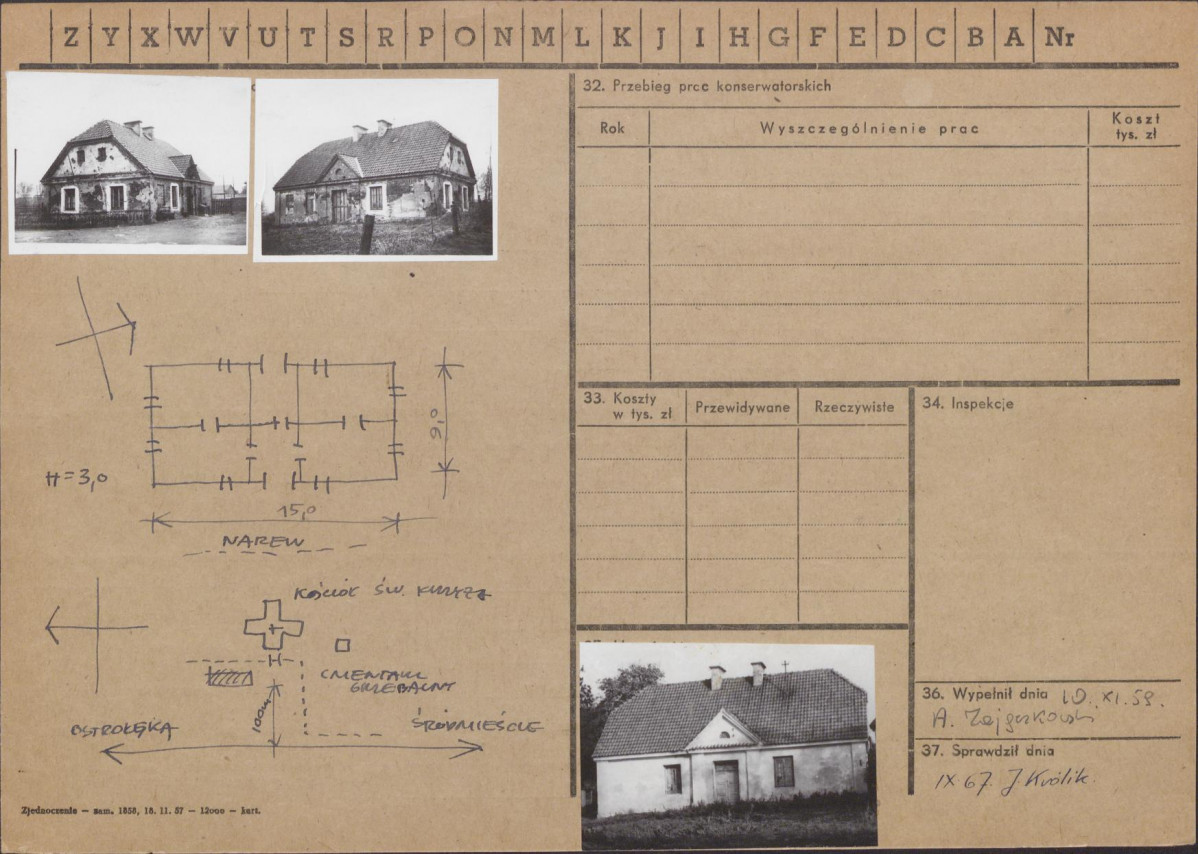 Z Y X W V U T S R P O N M L K J I H G F E D C B A Nr
32. Przebieg prac konserwatorskich
Rok
Wyszczególnienie prac
Koszt
tys. zł
33. Koszty
w tys. zł
Przewidywane
Rzeczywiste
34. Inspekcje
H=3,0
9,0
15,0
NAREW
KOŚCIÓŁ ŚW. KRZYŻA
CMENTARZ
GRZEBALNY
100m
OSTROŁĘKA
ŚRÓDMIEŚCIE
36. Wypełnił dnia 10. XI. 59.
A.
37. Sprawdził dnia
IX 67. J. Królik.
Zjednoczenie — zam. 1858, 18. 11. 57 — 12000 — kart.